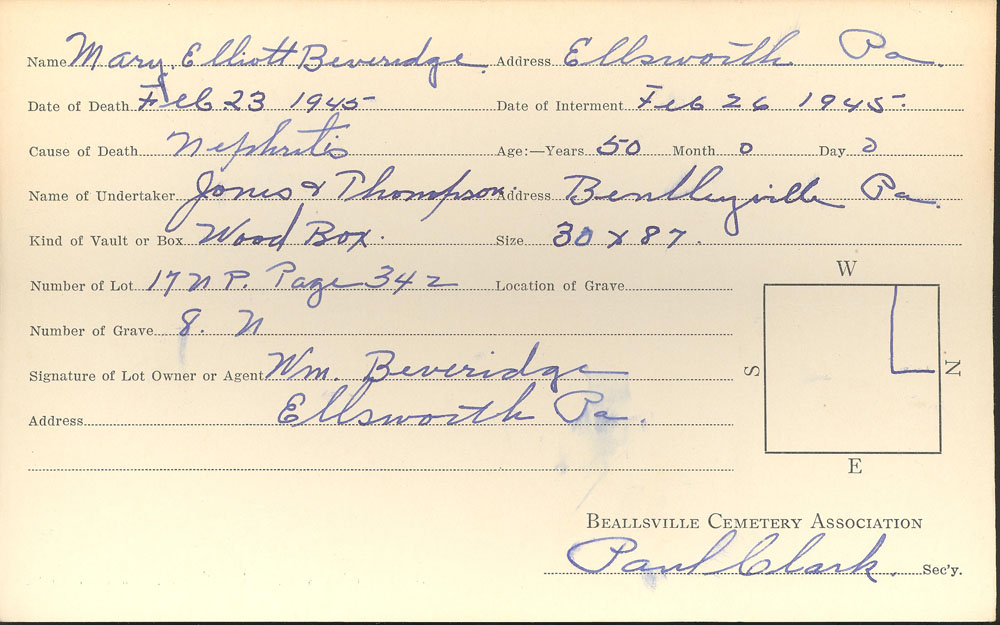 Name Mary Elliott Beveridge. Address Ellsworth Pa.
Date of Death Feb. 23 1945 Date of Interment Feb 26 1945.
Cause of Death Nephritis Age:—Years 50 Month 0 Day 0
Name of Undertaker Jones & Thompson. Address Bentleyville Pa.
Kind of Vault or Box Wood Box. Size 30 x 87.
Number of Lot 17 N P. Page 342 Location of Grave
W
Number of Grave 8. N
S N
Signature of Lot Owner or Agent Wm. Beveridge
Address Ellsworth Pa.
E
Beallsville Cemetery Association
Paul Clark. Sec'y.